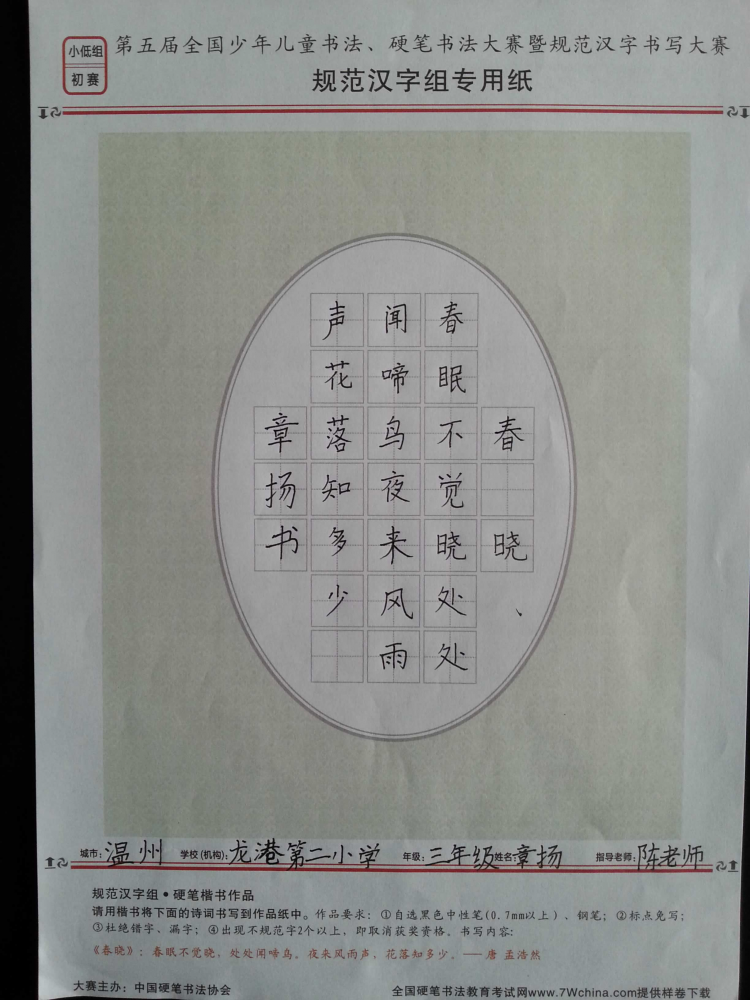 小低组
初赛
第五届全国少年儿童书法、硬笔书法大赛暨规范汉字书写大赛
规范汉字组专用纸
春晓
春眠不觉晓处处
闻啼鸟夜来风雨
声花落知多少
章扬书
城市:温州 学校(机构):龙港第二小学 年级:三年级 姓名:章扬 指导老师:陈老师
规范汉字组•硬笔楷书作品
请用楷书将下面的诗词书写到作品纸中。作品要求:①自选黑色中性笔(0.7mm以上)、钢笔;②标点免写;
③杜绝错字、漏字;④出现不规范字2个以上,即取消获奖资格。书写内容:
《春晓》:春眠不觉晓,处处闻啼鸟。夜来风雨声,花落知多少。——唐 孟浩然
大赛主办:中国硬笔书法协会 全国硬笔书法教育考试网www.7Wchina.com提供样卷下载